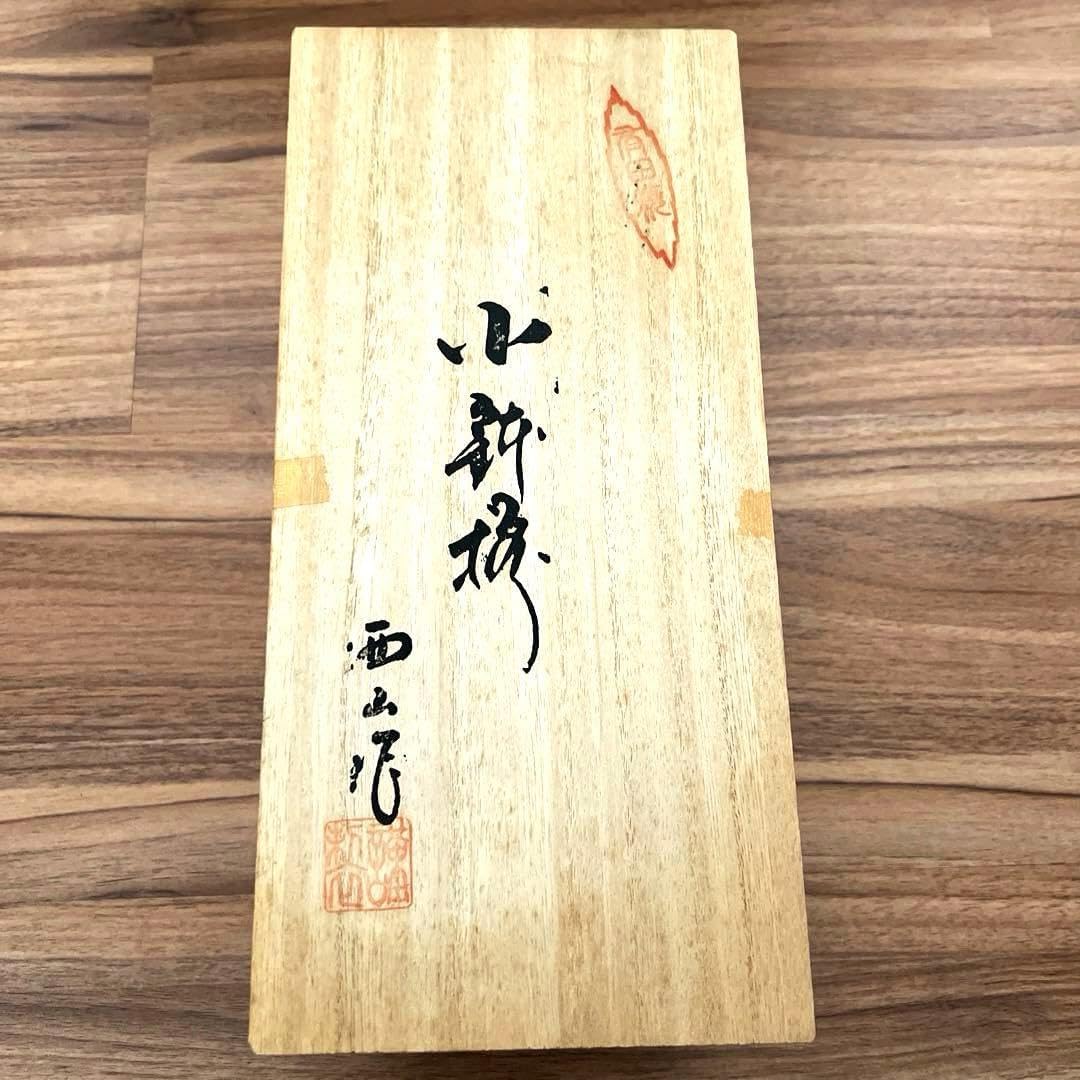 有田焼
小鉢揃
西山作